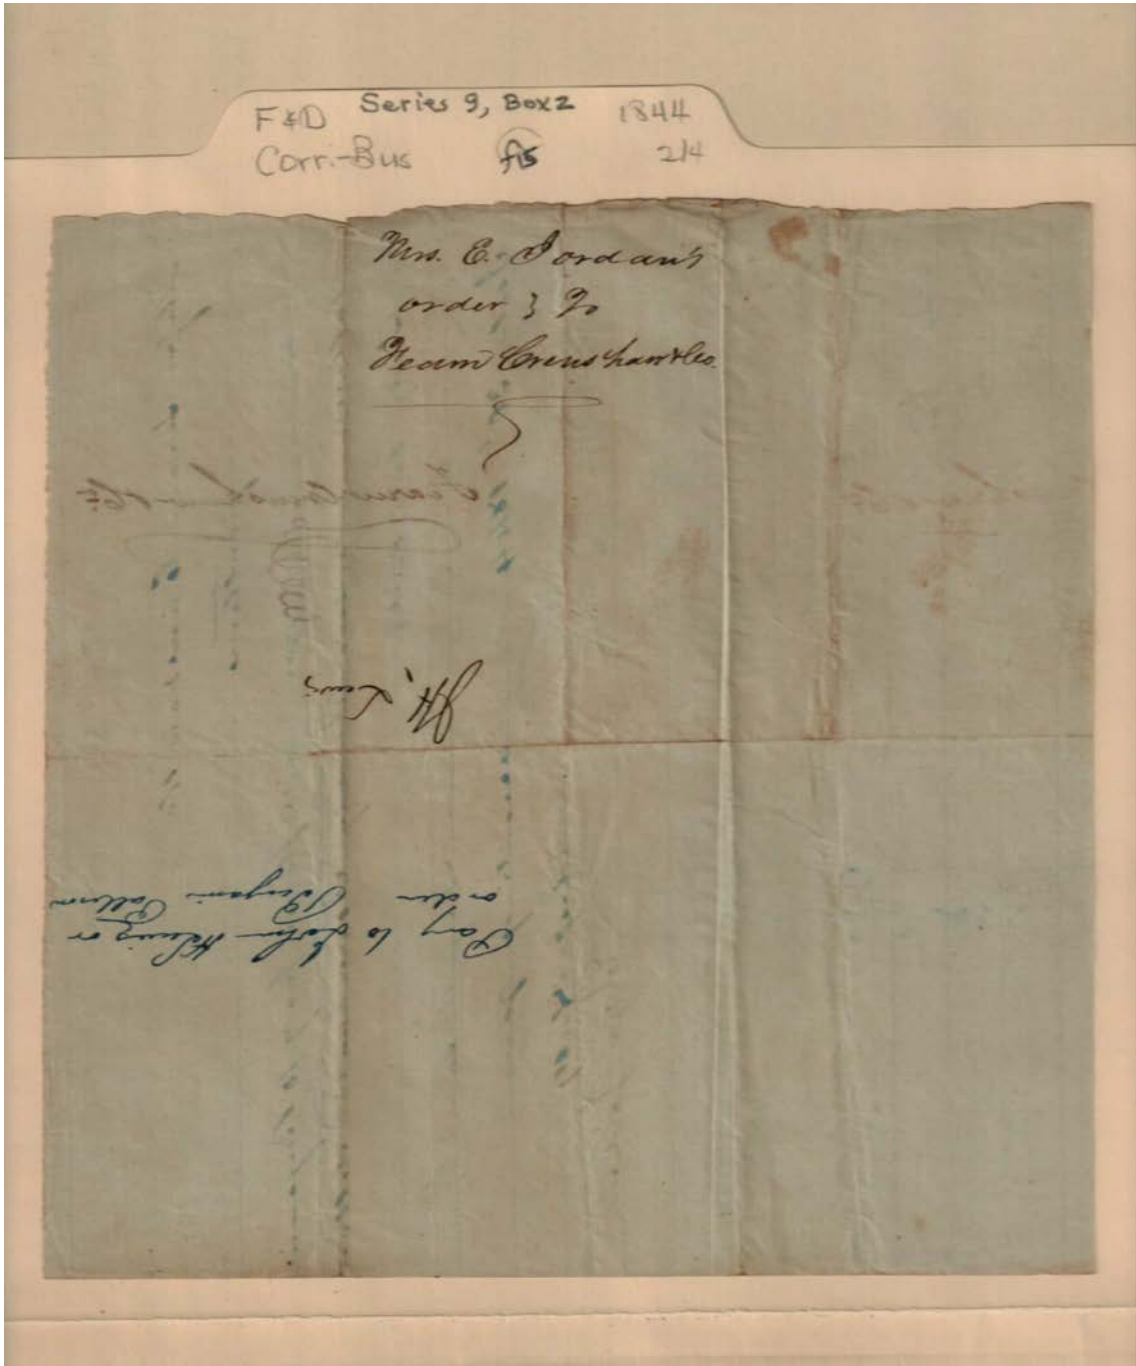 F&D Series 9, Box 2 1844
Corr.-Bus f15 2/4
Mrs. E. Jordan's
order } To
Fearn Crenshaw & Co.
J H, Lewis
Pay to John H Lewis or
order Benjamin